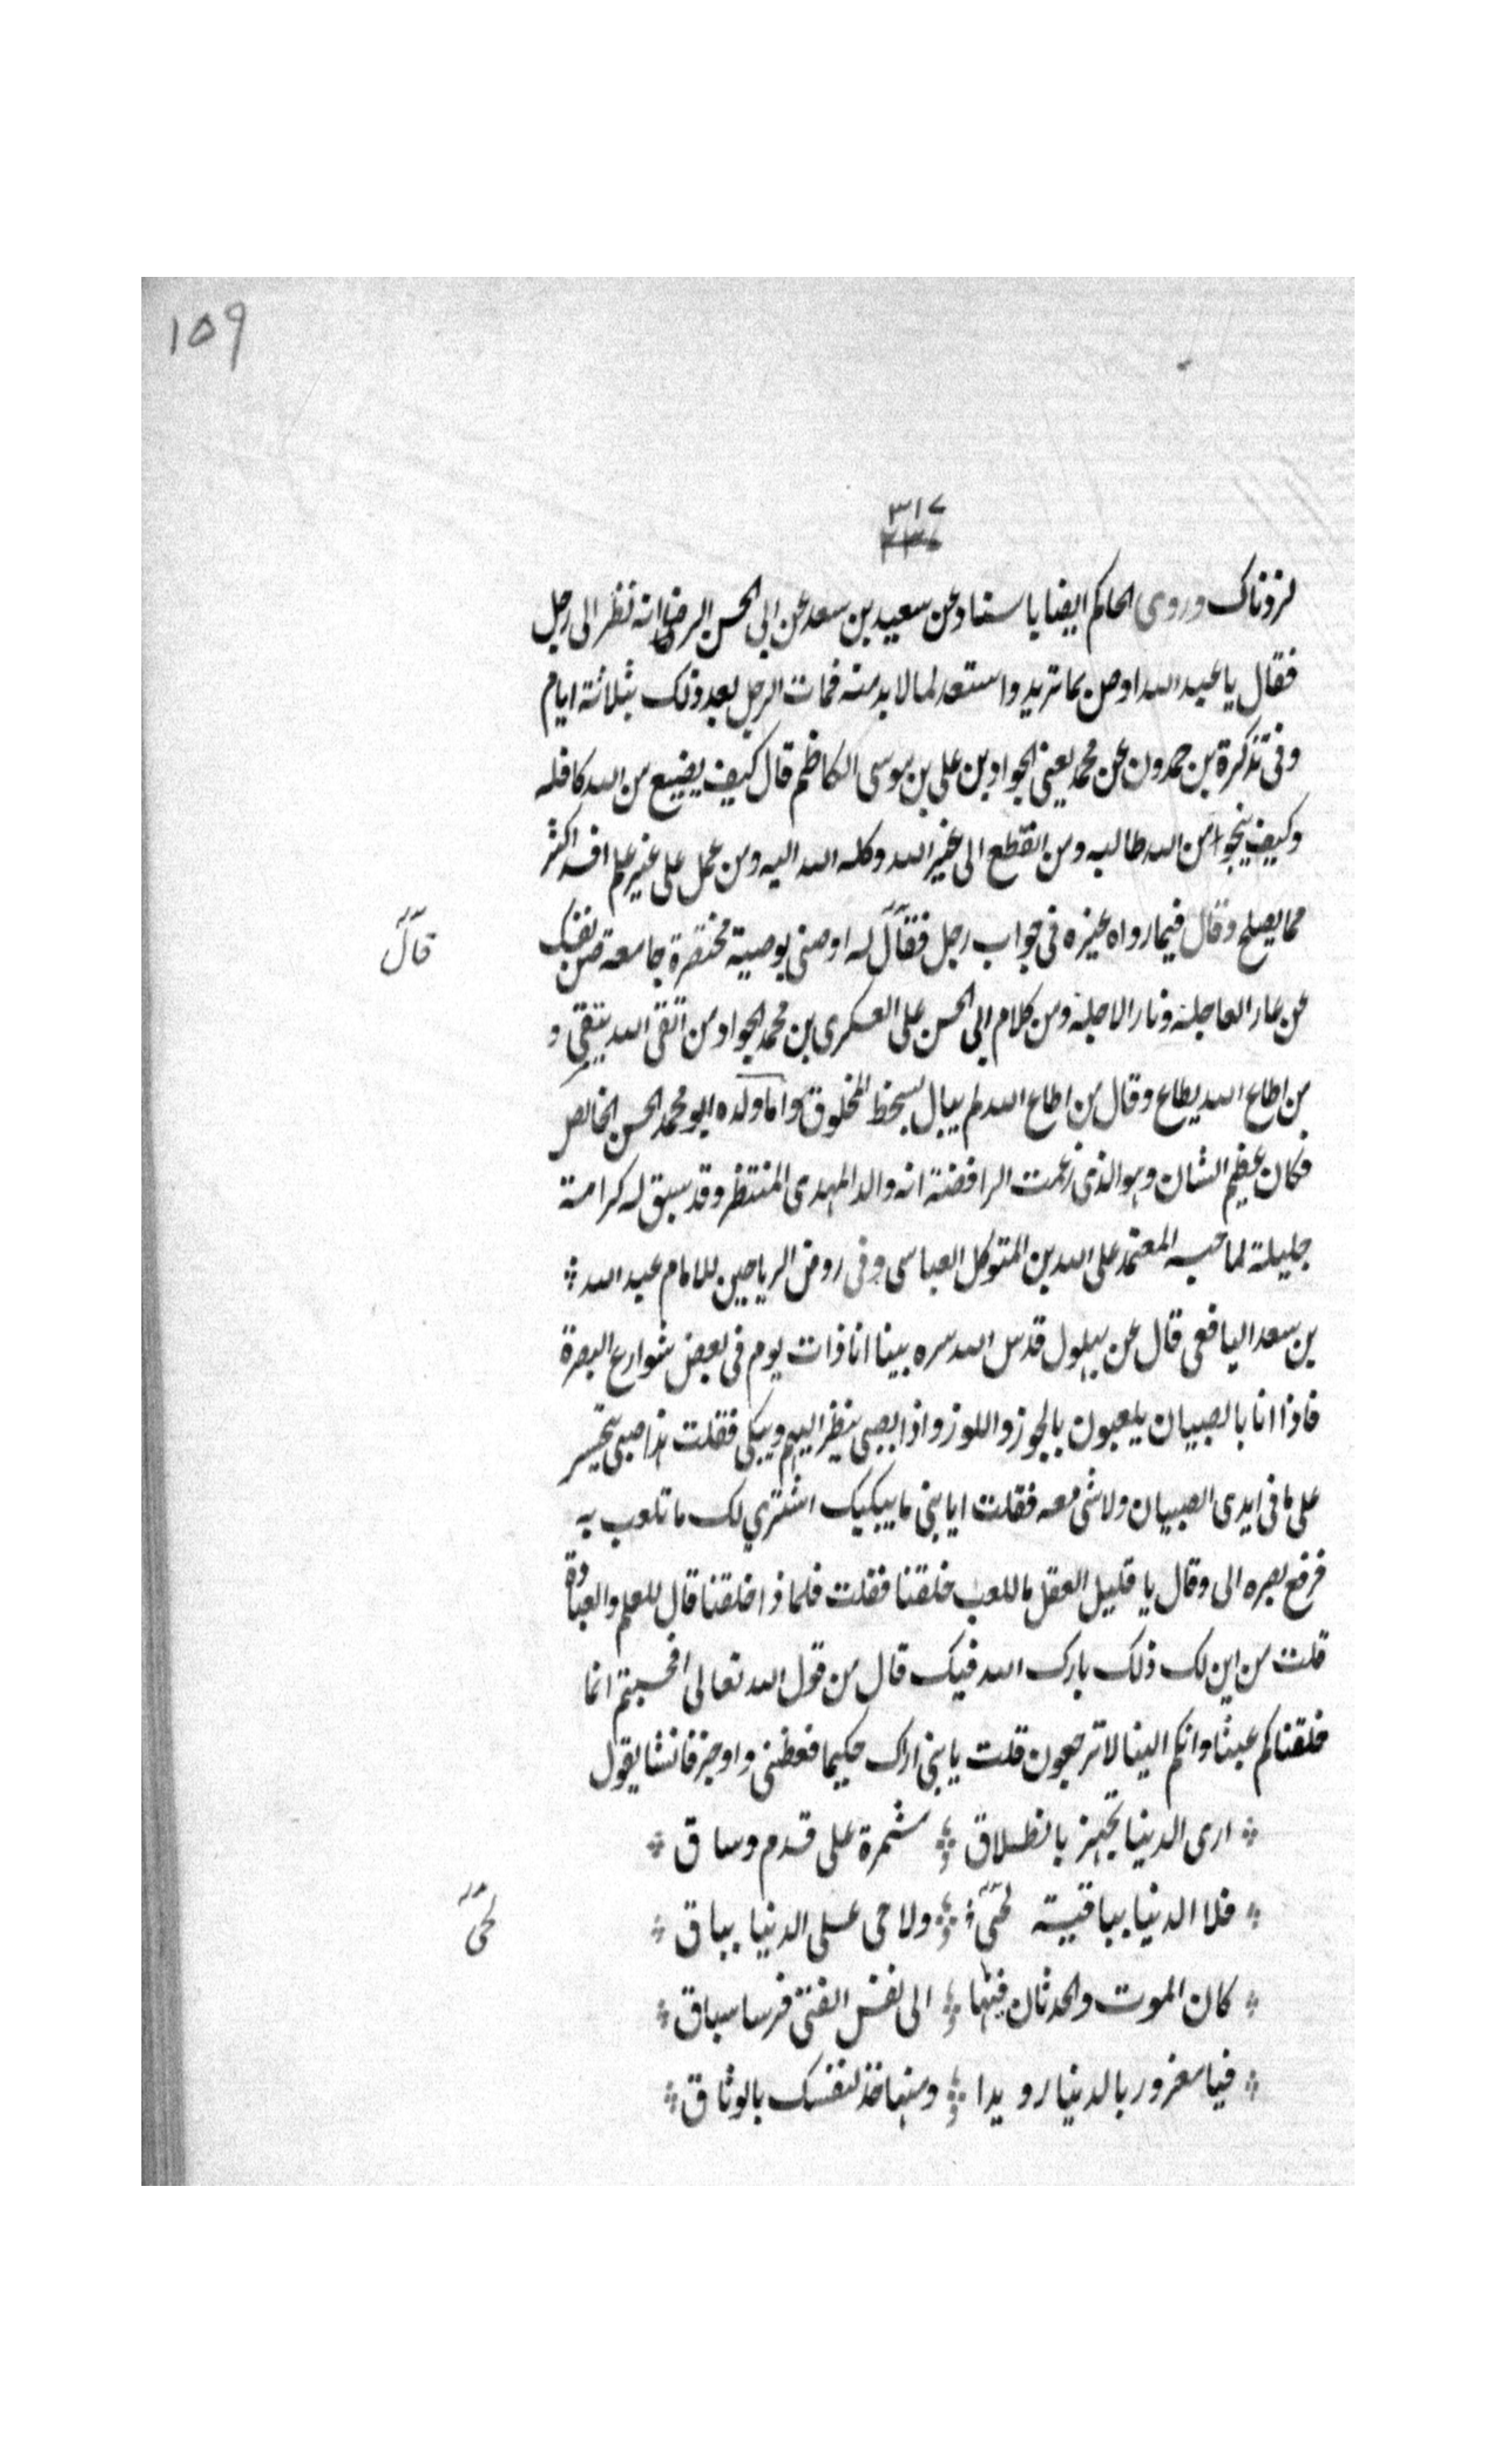 ١٥٩
٣١٧
٣٣٧
لزدناك وروى الحاكم ايضا باسناد عن سعيد بن سعد عن ابى الحسن الرضا انه نظر الى رجل
فقال يا عبد الله اوص بما تريد واستعد لما لا بد منه فمات الرجل بعد ذلك بثلاثة ايام
وفى تذكرة بن حمدون عن محمد يعنى الجواد بن على بن موسى الكاظم قال كيف يضيع من الله كافله
وكيف ينجوا من الله طالبه ومن انقطع الى غير الله وكله الله اليه ومن عمل على غير علم افسد اكثر
مما يصلح وقال فيما رواه غيره فى جواب رجل فقال له اوصنى بوصية مختصرة جامعة صن نفسك
قال
عن عار العاجلة ونار الاجلة ومن كلام ابى الحسن على العسكرى بن محمد الجواد من اتقى الله يتقى و
من اطاع الله يطاع وقال من اطاع الله لم يبال بسخط المخلوق واما ولده ابو محمد الحسن الخالص
فكان عظيم الشان وهو الذى زعمت الرافضة انه والد المهدى المنتظر وقد سبق له كرامة
جليلة لما حبسه المعتمد على الله بن المتوكل العباسى وفى روض الرياحين للامام عبد الله
بن سعد اليافعى قال عن بهلول قدس الله سره بينا انا ذات يوم فى بعض شوارع البصرة
فاذا انا بالصبيان يلعبون بالجوز واللوز واذا بصبى ينظر اليهم ويبكى فقلت هذا صبى يتحسر
على ما فى ايدى الصبيان ولا شى معه فقلت ايا بنى ما يبكيك اشترى لك ما تلعب به
فرفع بصره الى وقال يا قليل العقل ما للعب خلقنا فقلت فلماذا خلقنا قال للعلم والعبادة
قلت من اين لك ذلك بارك الله فيك قال من قول الله تعالى افحسبتم انما
خلقناكم عبثا وانكم الينا لا ترجعون قلت يا بنى اراك حكيما فعظنى واوجز فانشا يقول
ارى الدنيا تجهز بانطلاق مشمرة على قدم وساق
فلا الدنيا بباقية لحى ولا حى على الدنيا بباق
لحى
كان الموت والحدثان فيها الى نفس الفتى فرسا سباق
فيا مغرور بالدنيا رويدا ومنها خذ لنفسك بالوثاق